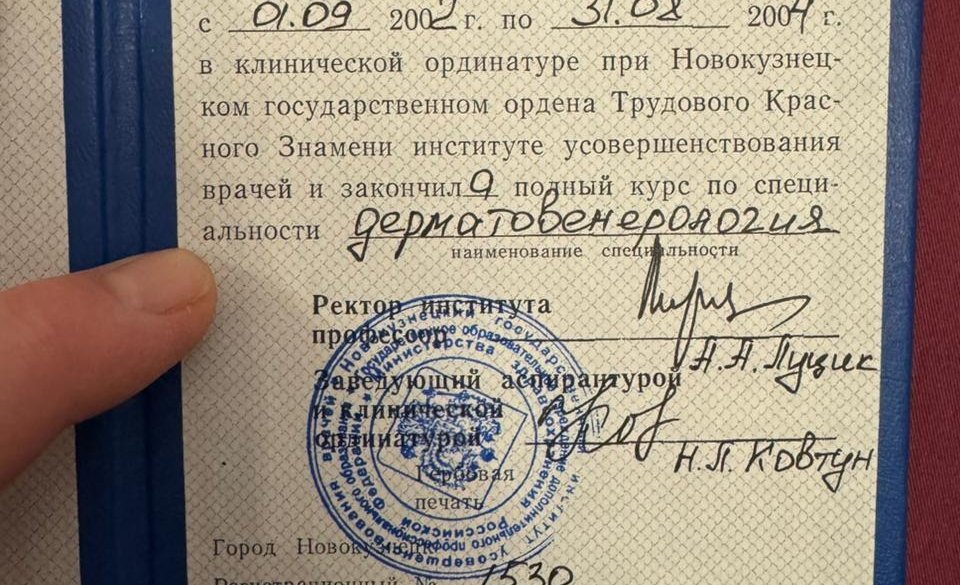 с 01.09 2002 г. по 31.08 2004 г.
в клинической ординатуре при Новокузнец-
ком государственном ордена Трудового Крас-
ного Знамени институте усовершенствования
врачей и закончила полный курс по специ-
альности дерматовенерология
наименование специальности
Ректор института
профессор
А.А. Луцик
Заведующий аспирантурой
и клинической
ординатурой
Н.Л. Ковтун
Гербовая
печать
Город Новокузнецк
Регистрационный № 1530